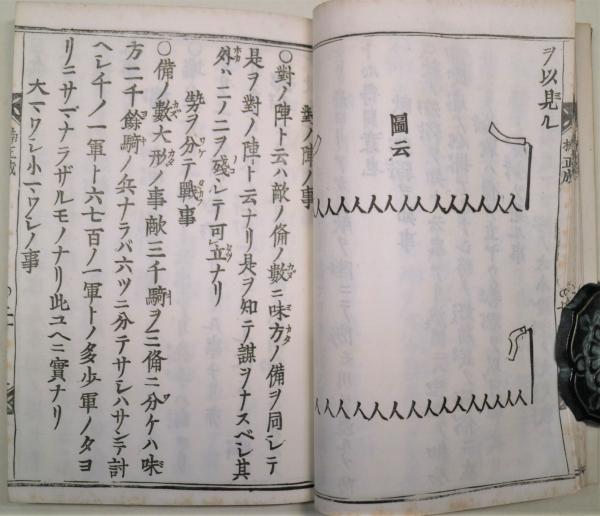 ヲ以見ル
圖云
對ノ陣ノ事
○對ノ陣ト云ハ敵ノ備ノ數ニ味方ノ備ヲ同シテ
是ヲ對ノ陣ト云ナリ是ヲ知テ謀ヲナスベシ其
外ハ二ノ二ヲ殘シテ可立ナリ
勢ヲ分テ戰事
○備ノ數大形ノ事敵三千騎ヲ三備ニ分ケハ味
方二千餘騎ノ兵ナラバ六ツニ分テサレハサンテ討
ヘシ千ノ一軍ト六七百ノ一軍トノ多少軍ノタヨ
リニサマデナラザルモノナリ此ユヘニ實ナリ
大マワシ小マワシノ事
楠正成